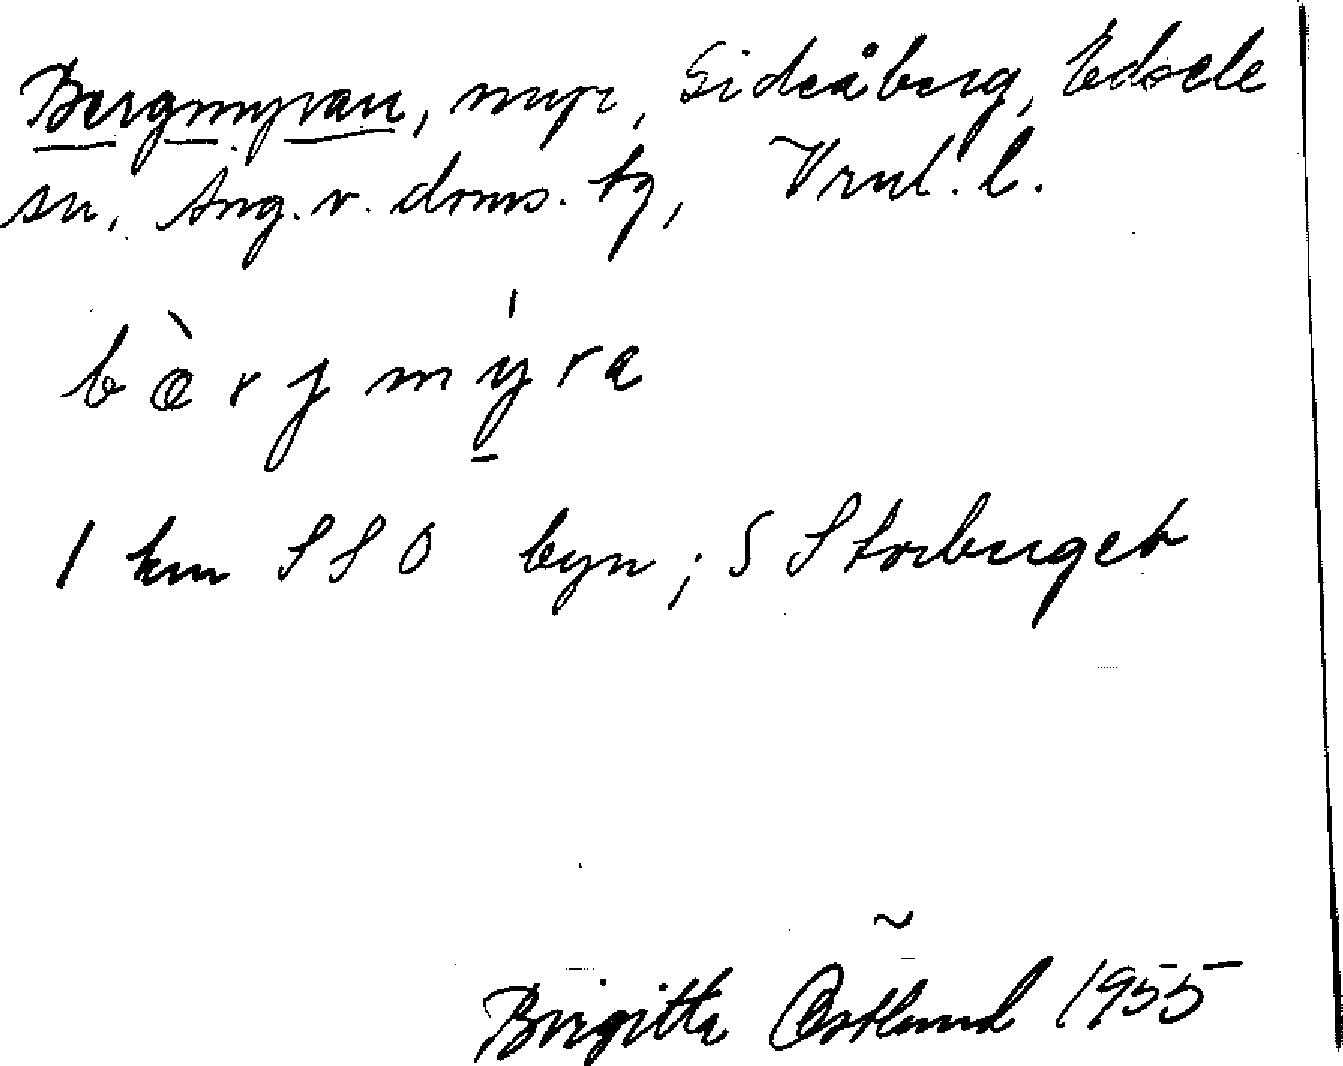 Bergmyran, myr, Gideåberg, Edsele
sn, Ång. v. doms. tg, Vrnl. l.
bœ̀rjmýra
1 km SSO byn; S Storberget
Birgitta Östlund 1955